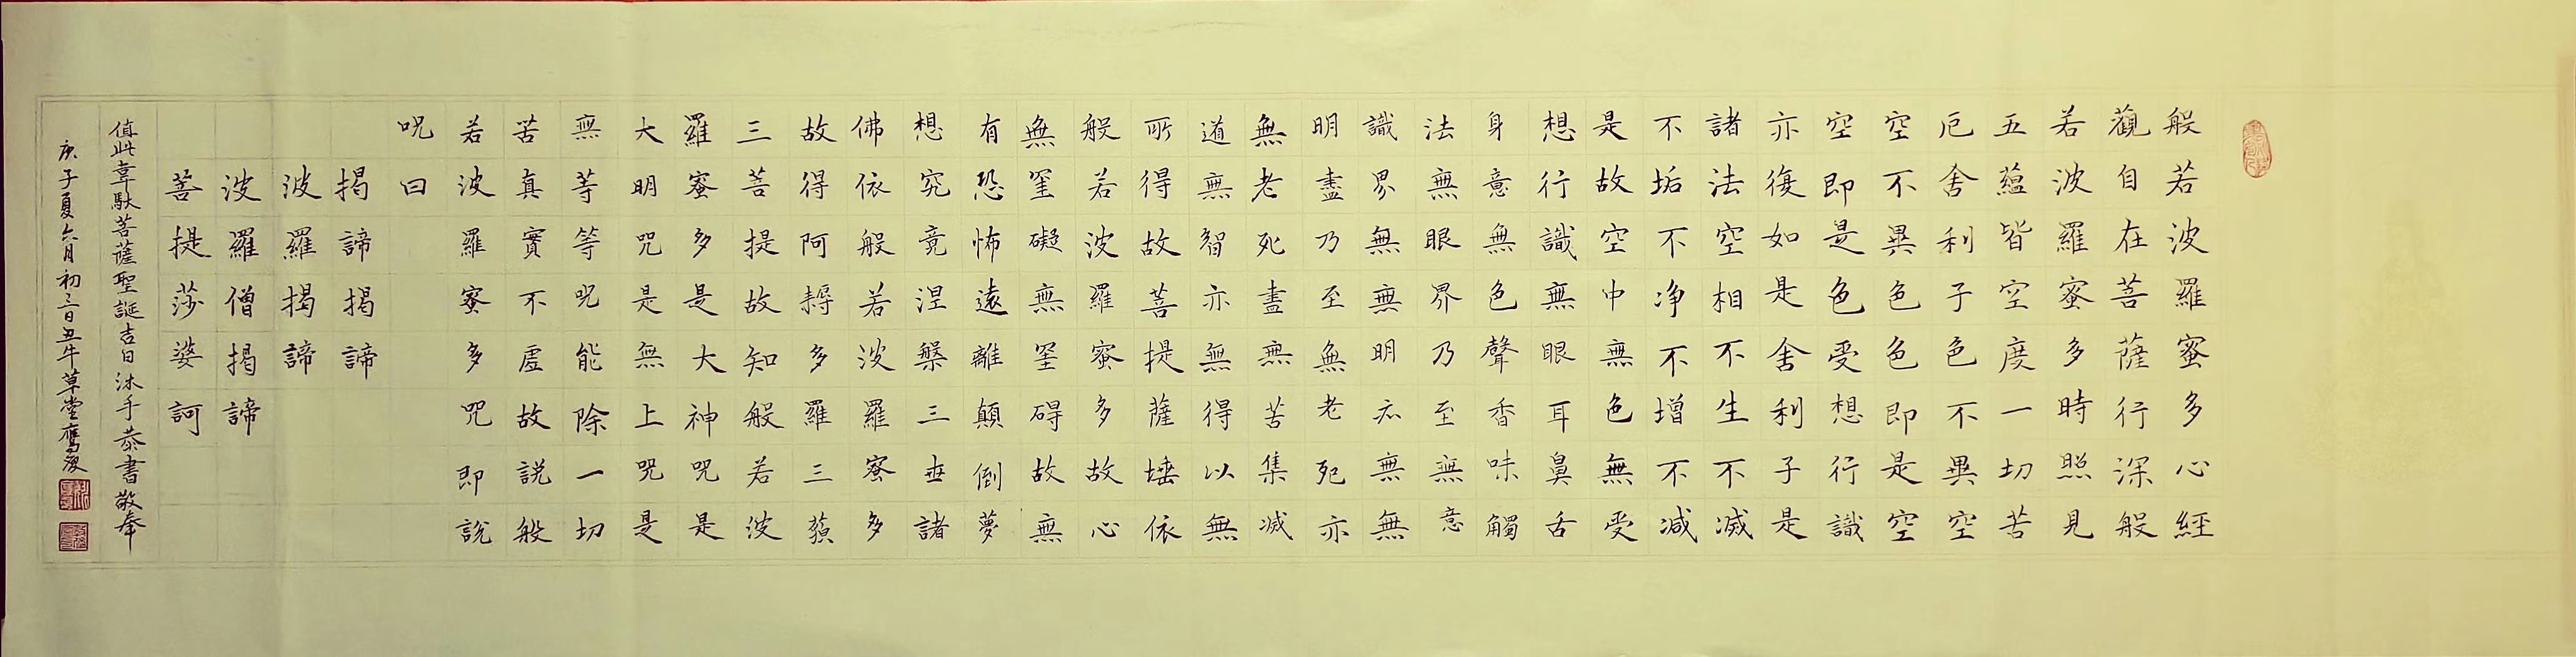 般若波羅蜜多心經
觀自在菩薩行深般
若波羅蜜多時照見
五蘊皆空度一切苦
厄舍利子色不異空
空不異色色即是空
空即是色受想行識
亦復如是舍利子是
諸法空相不生不滅
不垢不净不增不減
是故空中無色無受
想行識無眼耳鼻舌
身意無色聲香味觸
法無眼界乃至無意
識界無無明亦無無
明盡乃至無老死亦
無老死盡無苦集滅
道無智亦無得以無
所得故菩提薩埵依
般若波羅蜜多故心
無罣礙無罣碍故無
有恐怖遠離顛倒夢
想究竟涅槃三世諸
佛依般若波羅蜜多
故得阿耨多羅三藐
三菩提故知般若波
羅蜜多是大神咒是
大明咒是無上咒是
無等等咒能除一切
苦真實不虛故説般
若波羅蜜多咒即説
咒曰
揭諦揭諦
波羅揭諦
波羅僧揭諦
菩提莎婆訶
值此韋馱菩薩聖誕吉日沐手恭書敬奉
庚子夏六月初三日丑牛草堂鷹